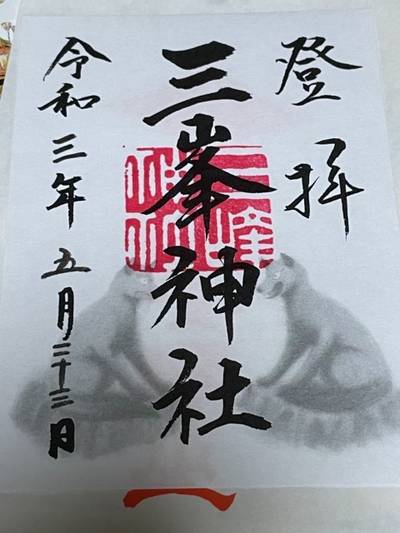 登拝
三峯神社
令和三年五月二十三日